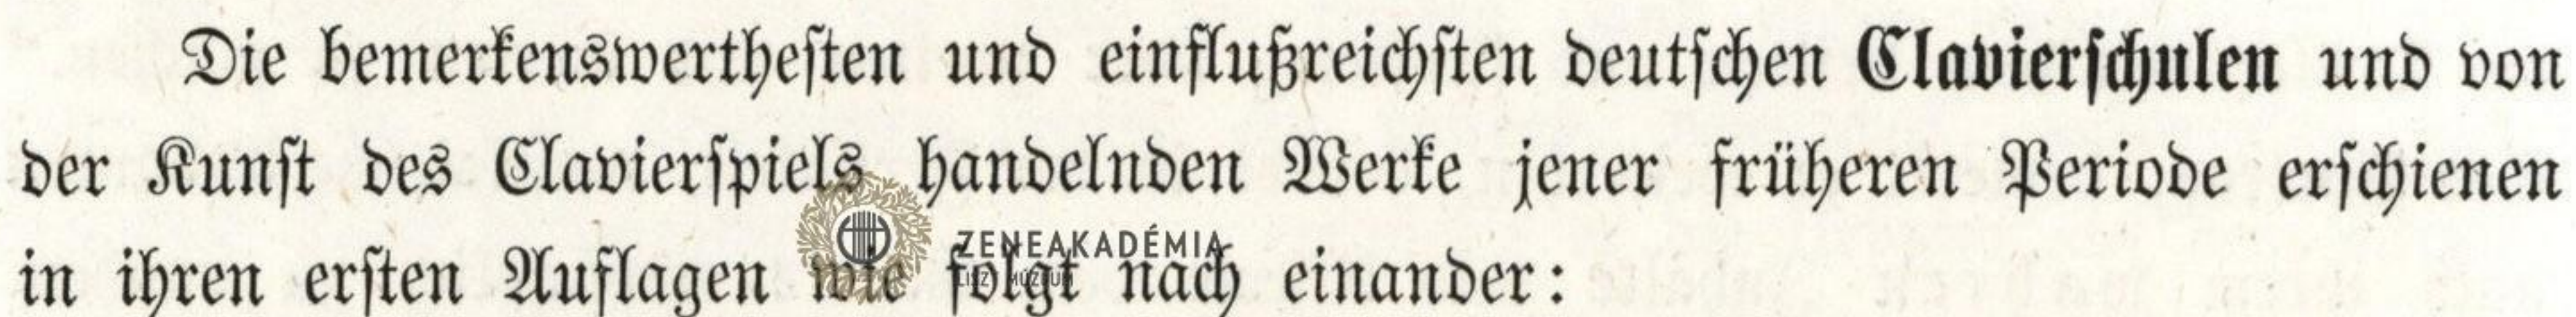 Die bemerkenswerthesten und einflußreichsten deutschen Clavierschulen und von
der Kunst des Clavierspiels handelnden Werke jener früheren Periode erschienen
in ihren ersten Auflagen wie folgt nach einander:
ZENEAKADÉMIA
LISZT MÚZEUM